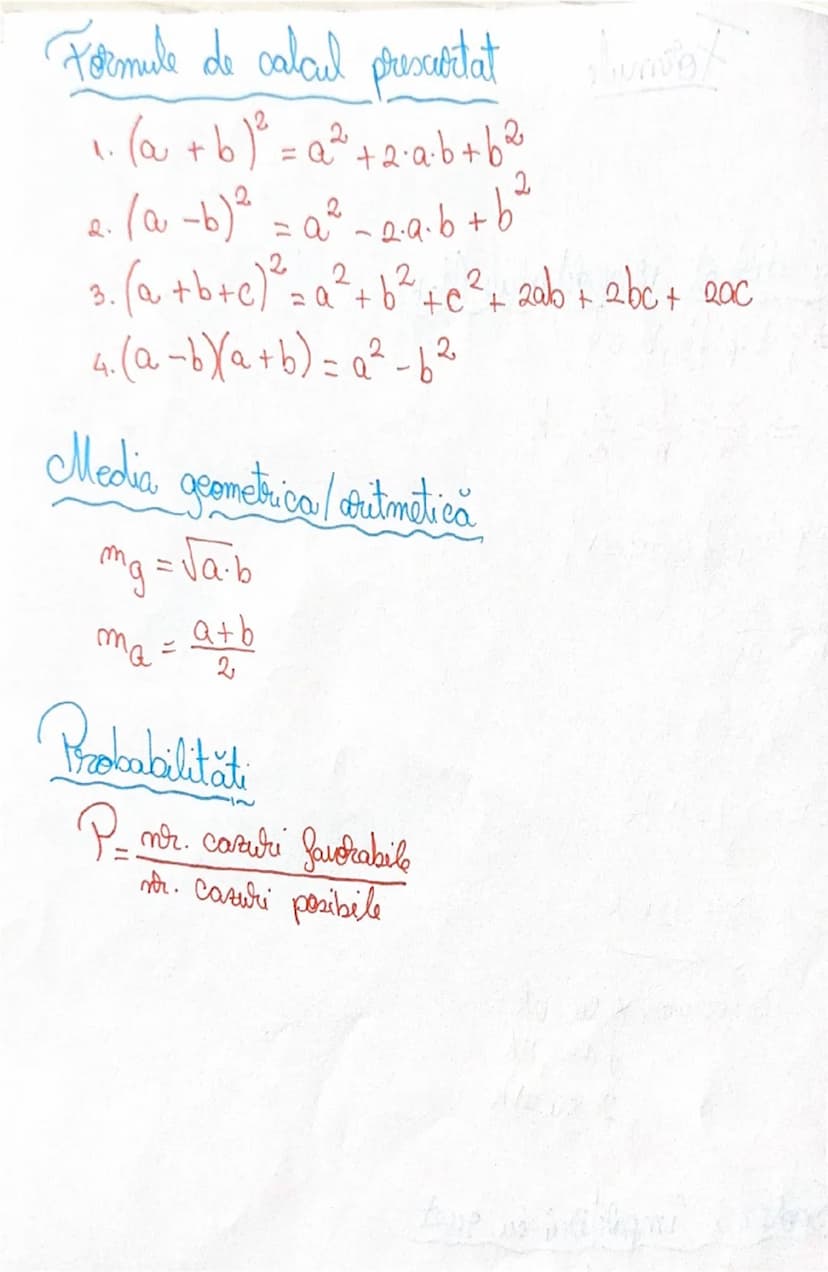 Formule de calcul prescurtat
1. (a + b)² = a² + 2·a·b + b²
2. (a - b)² = a² - 2·a·b + b²
3. (a + b + c)² = a² + b² + c² + 2ab + 2bc + 2ac
4. (a - b)(a + b) = a² - b²
Media geometrica/aritmetică
mg = √a·b
ma = a+b
2
Probabilităti
P = nr. cazuri favorabile
nr. cazuri posibile